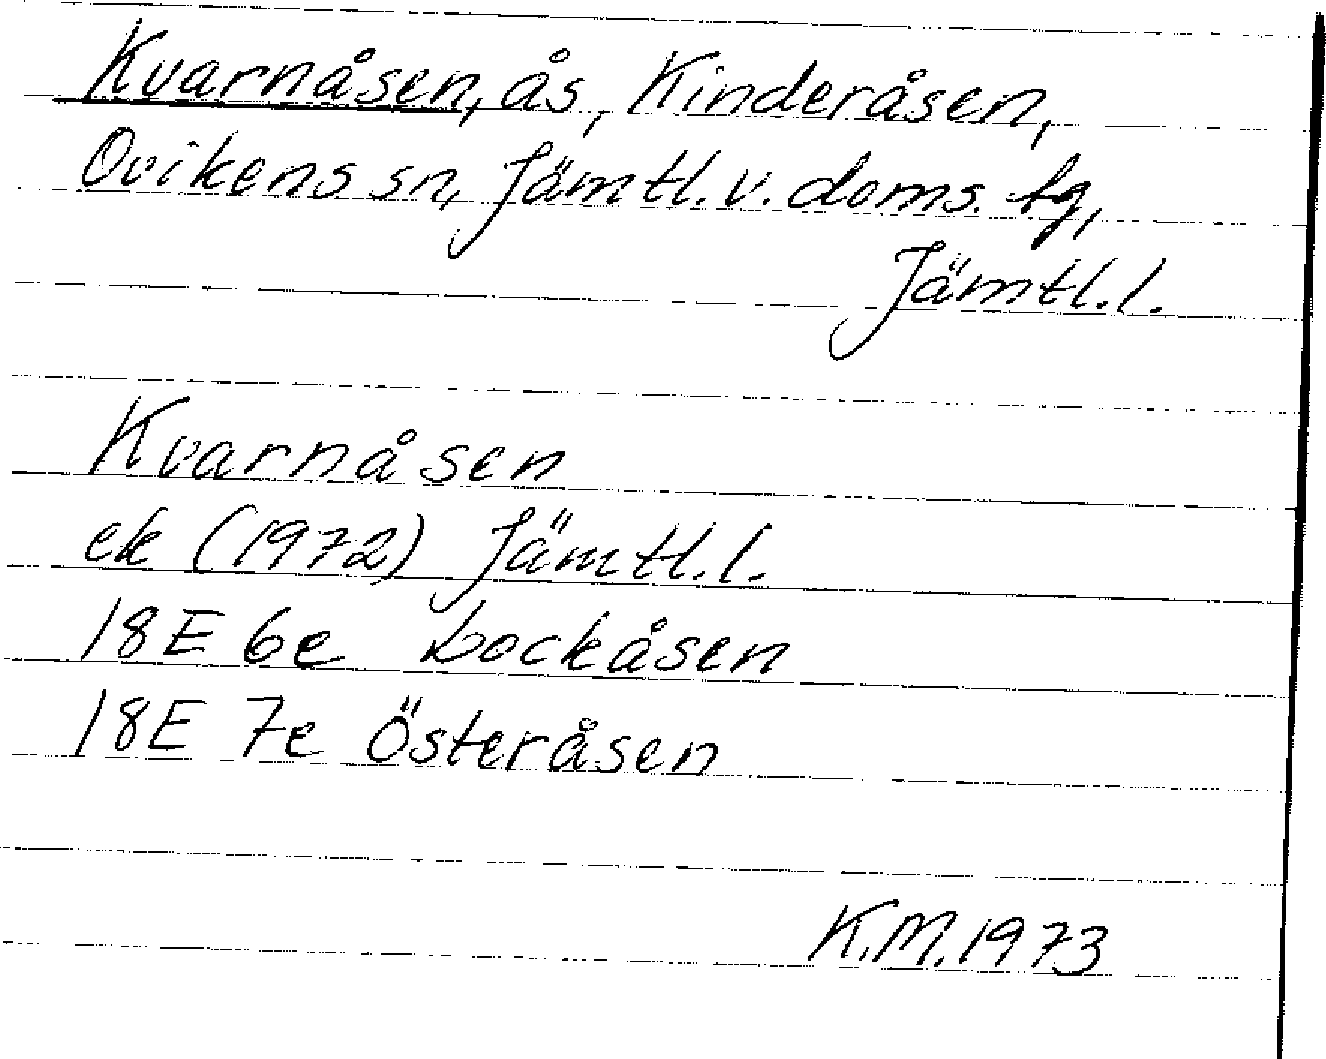 Kvarnåsen, ås, Kinderåsen,
Ovikens sn, Jämtl. v. doms. tg,
Jämtl. l.
Kvarnåsen
ek (1972) Jämtl. l.
18E 6e Dockåsen
18E 7e Österåsen
K.M. 1973